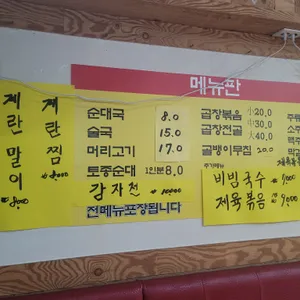 메뉴판
계란말이
계란찜
₩8000
순대국 8.0
술국 15.0
머리고기 17.0
토종순대 1인분 8.0
감자전 ₩10000
전메뉴포장됩니다
곱창볶음 小20.0
곱창전골 中30.0
大40.0
골뱅이무침 20.0
추가메뉴
비빔국수 ₩7000
제육볶음 ₩9000
주류
소주
맥주